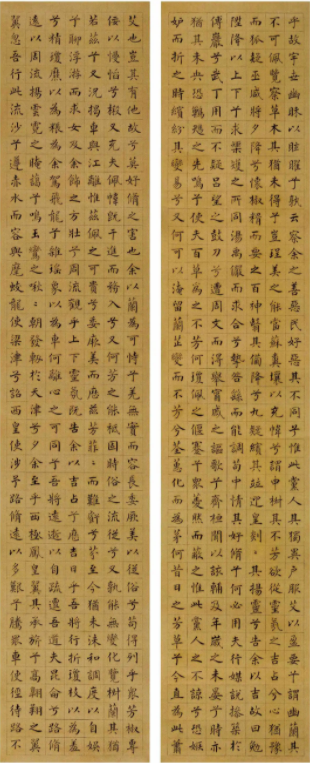 乎故宇世幽昧以眩曜兮孰云察余之善惡民好惡其不同兮惟此黨人其獨異戶服艾以盈要兮謂幽蘭其
不可佩覽察草木其猶未得兮豈珵美之能當蘇糞壤以充幃兮謂申椒其不芳欲從靈氛之吉占兮心猶豫
而狐疑巫咸將夕降兮懷椒糈而要之百神翳其備降兮九疑繽其並迎皇剡〻其揚靈兮告余以吉故曰勉
陞降以上下兮求榘矱之所同湯禹儼而求合兮摯咎繇而能調苟中情其好脩兮何必用夫行媒說操築於
傅巖兮武丁用而不疑呂望之鼓刀兮遭周文而得舉甯戚之謳歌兮齊桓聞以該輔及年歲之未晏兮時亦
猶其未央恐鵜鴂之先鳴兮使夫百草為之不芳何瓊佩之偃蹇兮眾薆然而蔽之惟此黨人之不諒兮恐嫉
妒而折之時繽紛其變易兮又何可以淹留蘭芷變而不芳兮荃蕙化而為茅何昔日之芳草兮今直為此蕭
艾也豈其有他故兮莫好脩之害也余以蘭為可恃兮羌無實而容長委厥美以從俗兮苟得列乎眾芳椒專
佞以慢慆兮樧又充夫佩幃既干進而務入兮又何芳之能祗固時俗之流從兮又孰能無變化覽椒蘭其猶
若茲兮又況揭車與江離惟茲佩之可貴兮委厥美而歷茲芳菲〻而難虧兮芬至今猶未沬和調度以自娛
兮聊浮游而求女及余飾之方壯兮周流觀乎上下靈氛既告余以吉占兮歷吉日乎吾將行折瓊枝以為羞
兮精瓊爢以為粻為余駕飛龍兮雜瑤象以為車何離心之可同兮吾將遠逝以自疏邅吾道夫昆侖兮路脩
遠以周流揚雲霓之晻藹兮鳴玉鸞之啾〻朝發軔於天津兮夕余至乎西極鳳皇翼其承旂兮高翱翔之翼
翼忽吾行此流沙兮遵赤水而容與麾蛟龍使梁津兮詔西皇使涉予路脩遠以多艱兮騰眾車使徑待路不